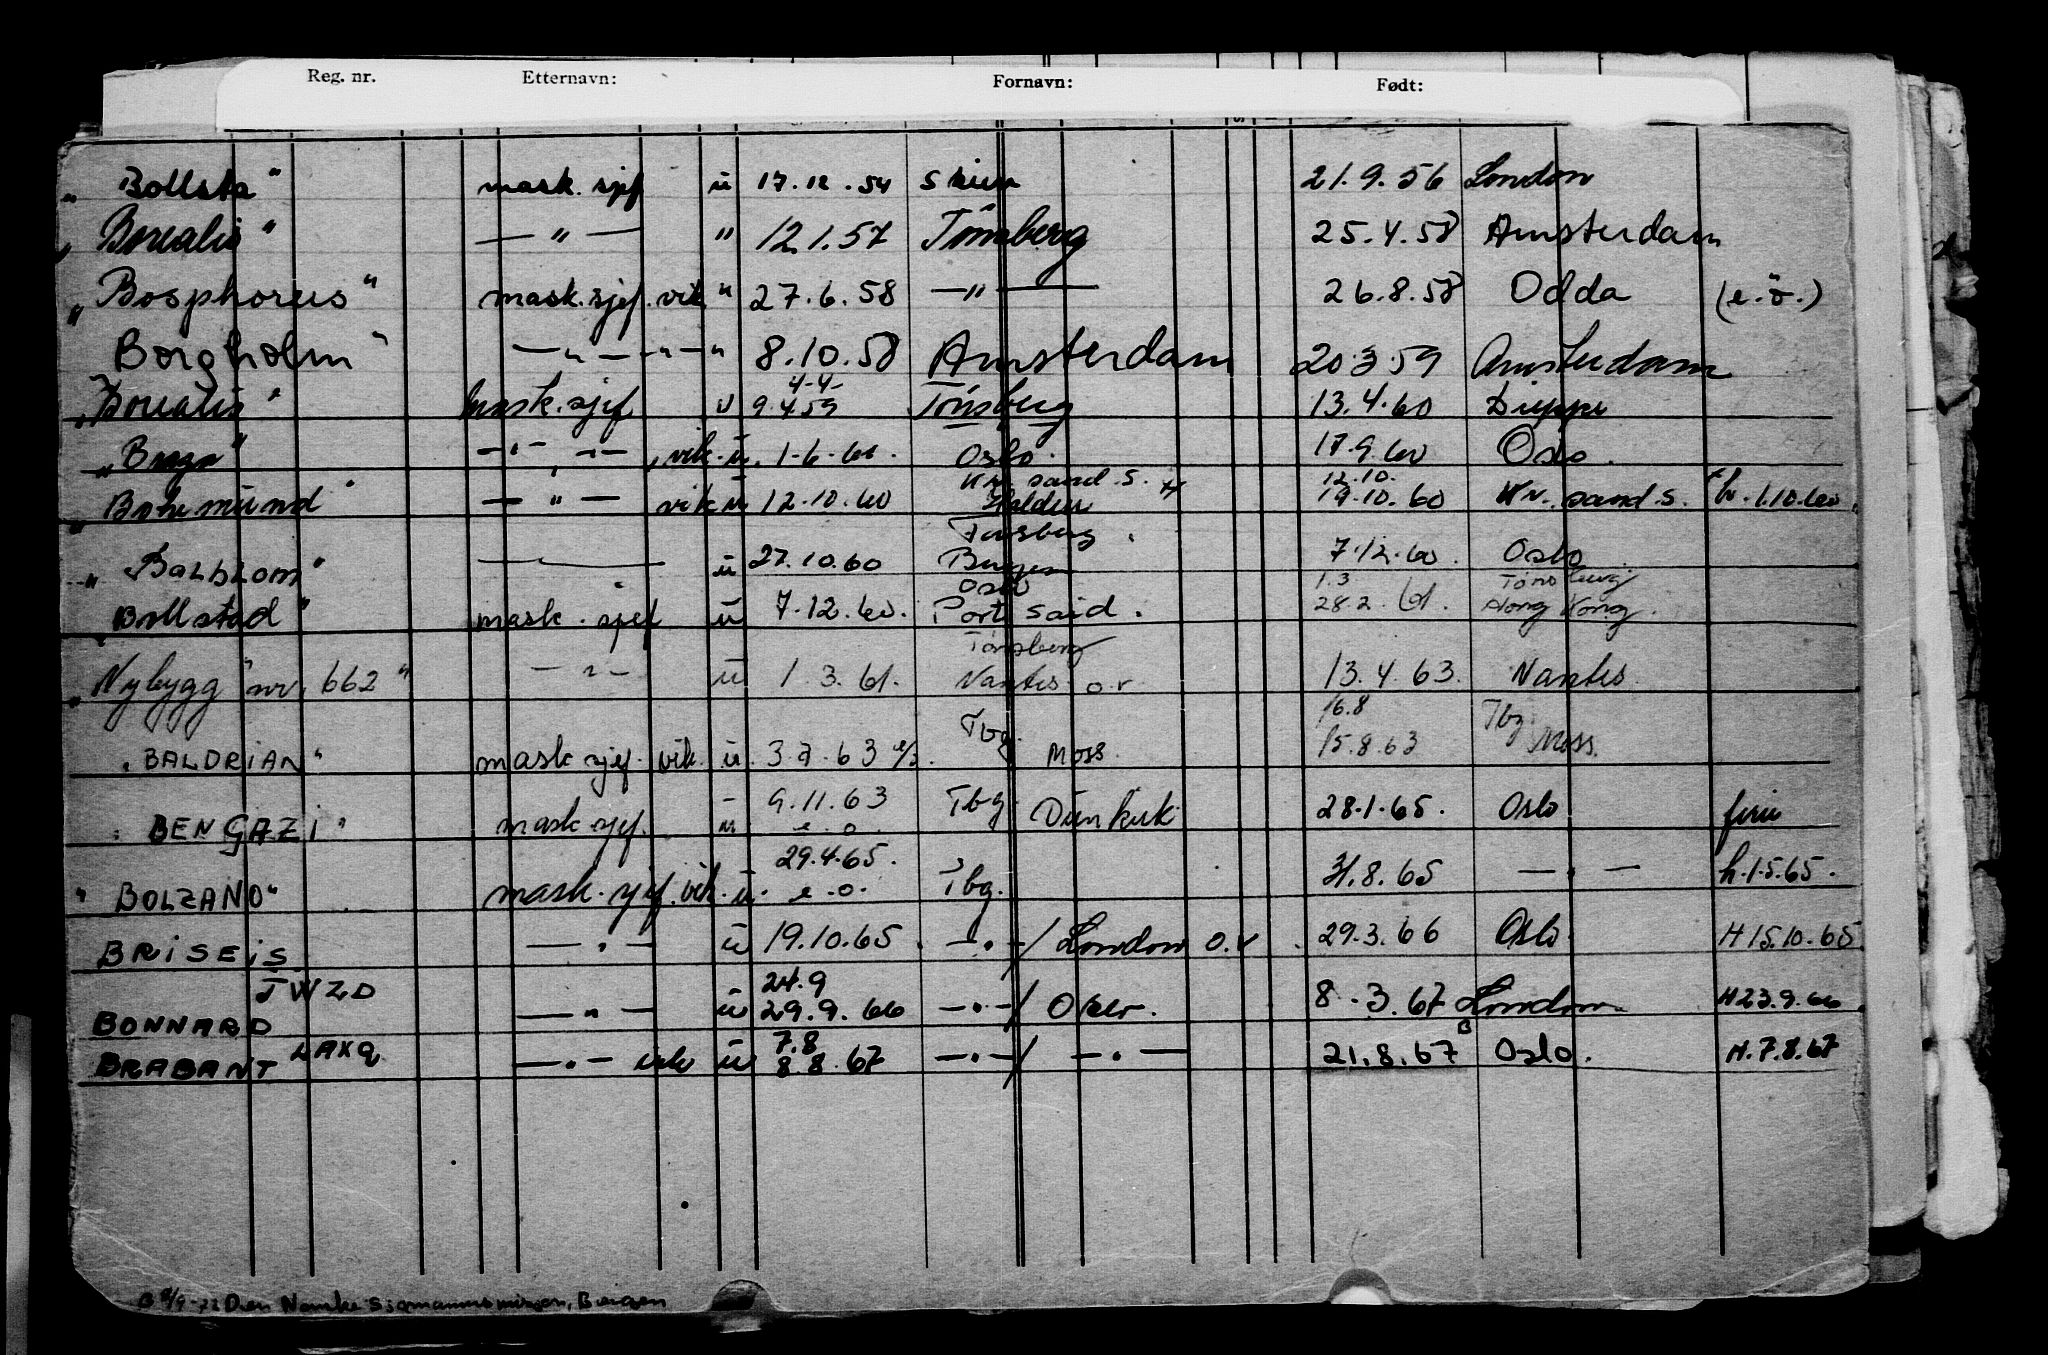 Reg. nr. Etternavn: Fornavn: Født:
„ Bollsta " mask. sjef ü 17.12.54 Skien 21.9.56 London
„ Borealis " — " — " 12.1.57 Tönsberg 25.4.58 Amsterdam
„ Bosphorus " mask. sjef. vik " 27.6.58 — " — 26.8.58 Odda (e.ö.)
Borgholm " — " — " — " 8.10.58 Amsterdam 20.3.59 Amsterdam
4-4-
„ Borealis " mask. sjef ü 9.4.59 Tönsberg 13.4.60 Dieppe
„ " — " — , — " — , vik. ü. 1-6-60. Oslo. 17.9.60 Oslo.
Kr. sand. S. 12.10.
„ Bohemund " — " — vik ü 12.10.60 Halden 19.10.60 Kr. sand. S. h. 1.10.60.
Tønsberg.
„ Balblom " — ü 27.10.60 Bergen 7.12.60. Oslo
Oslo 1.3 Tønsberg
„ Bollstad " mask. sjef ü 7.12.60. Port Said. 28.2.61. Hong Kong.
Tønsberg
„ Nybygg nr. 662 " — " — ü 1.3.61. Nantes o.r 13.4.63. Nantes
Tbg. 16.8 Tbg.
„ BALDRIAN " mask sjef. vik. ü. 63 Moss. 15.8.63 Moss.
9.11.63 Tbg. 28.1.65. Oslo
„ BENGAZI " mask. sjef. ü e.o. Dunkirk
29.4.65.
„ BOLZANO " mask. sjef. vik. ü. e.o. Tbg. 31.8.65 — " — h. 1.5.65.
BRISEIS — " — ü 19.10.65. — " — / London O.V. 29.3.66 Oslo H 15.10.65
JWZD 24.9
BONNARD — " — ü 29.9.66 — " — / Oslo. 8.3.67 London H 23.9.66
LAXQ 7.8 B
BRABANT — " — vik ü 8.8.67 — " — / — " — 21.8.67 Oslo. H. 7.8.67
Den Norske Sjømannsmisjon, Bergen